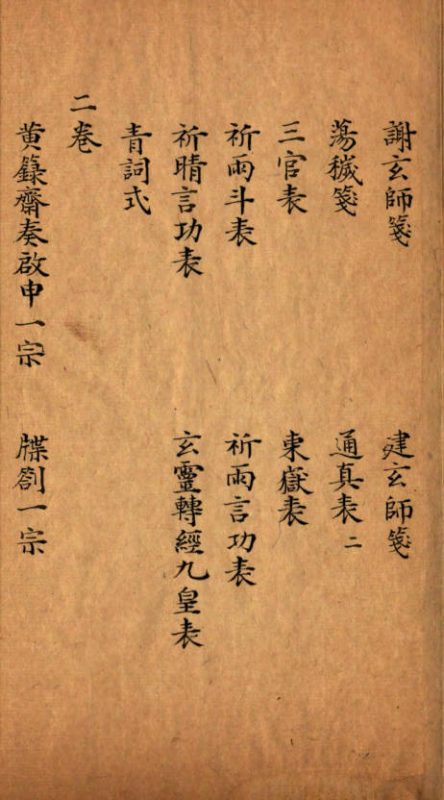 謝玄師箋　建玄師箋
蕩穢箋　通真表二
三官表　東嶽表
祈雨斗表　祈雨言功表
祈晴言功表　玄靈轉經九皇表
青詞式
二卷
黄籙齋奏啟申一宗　牒劄一宗